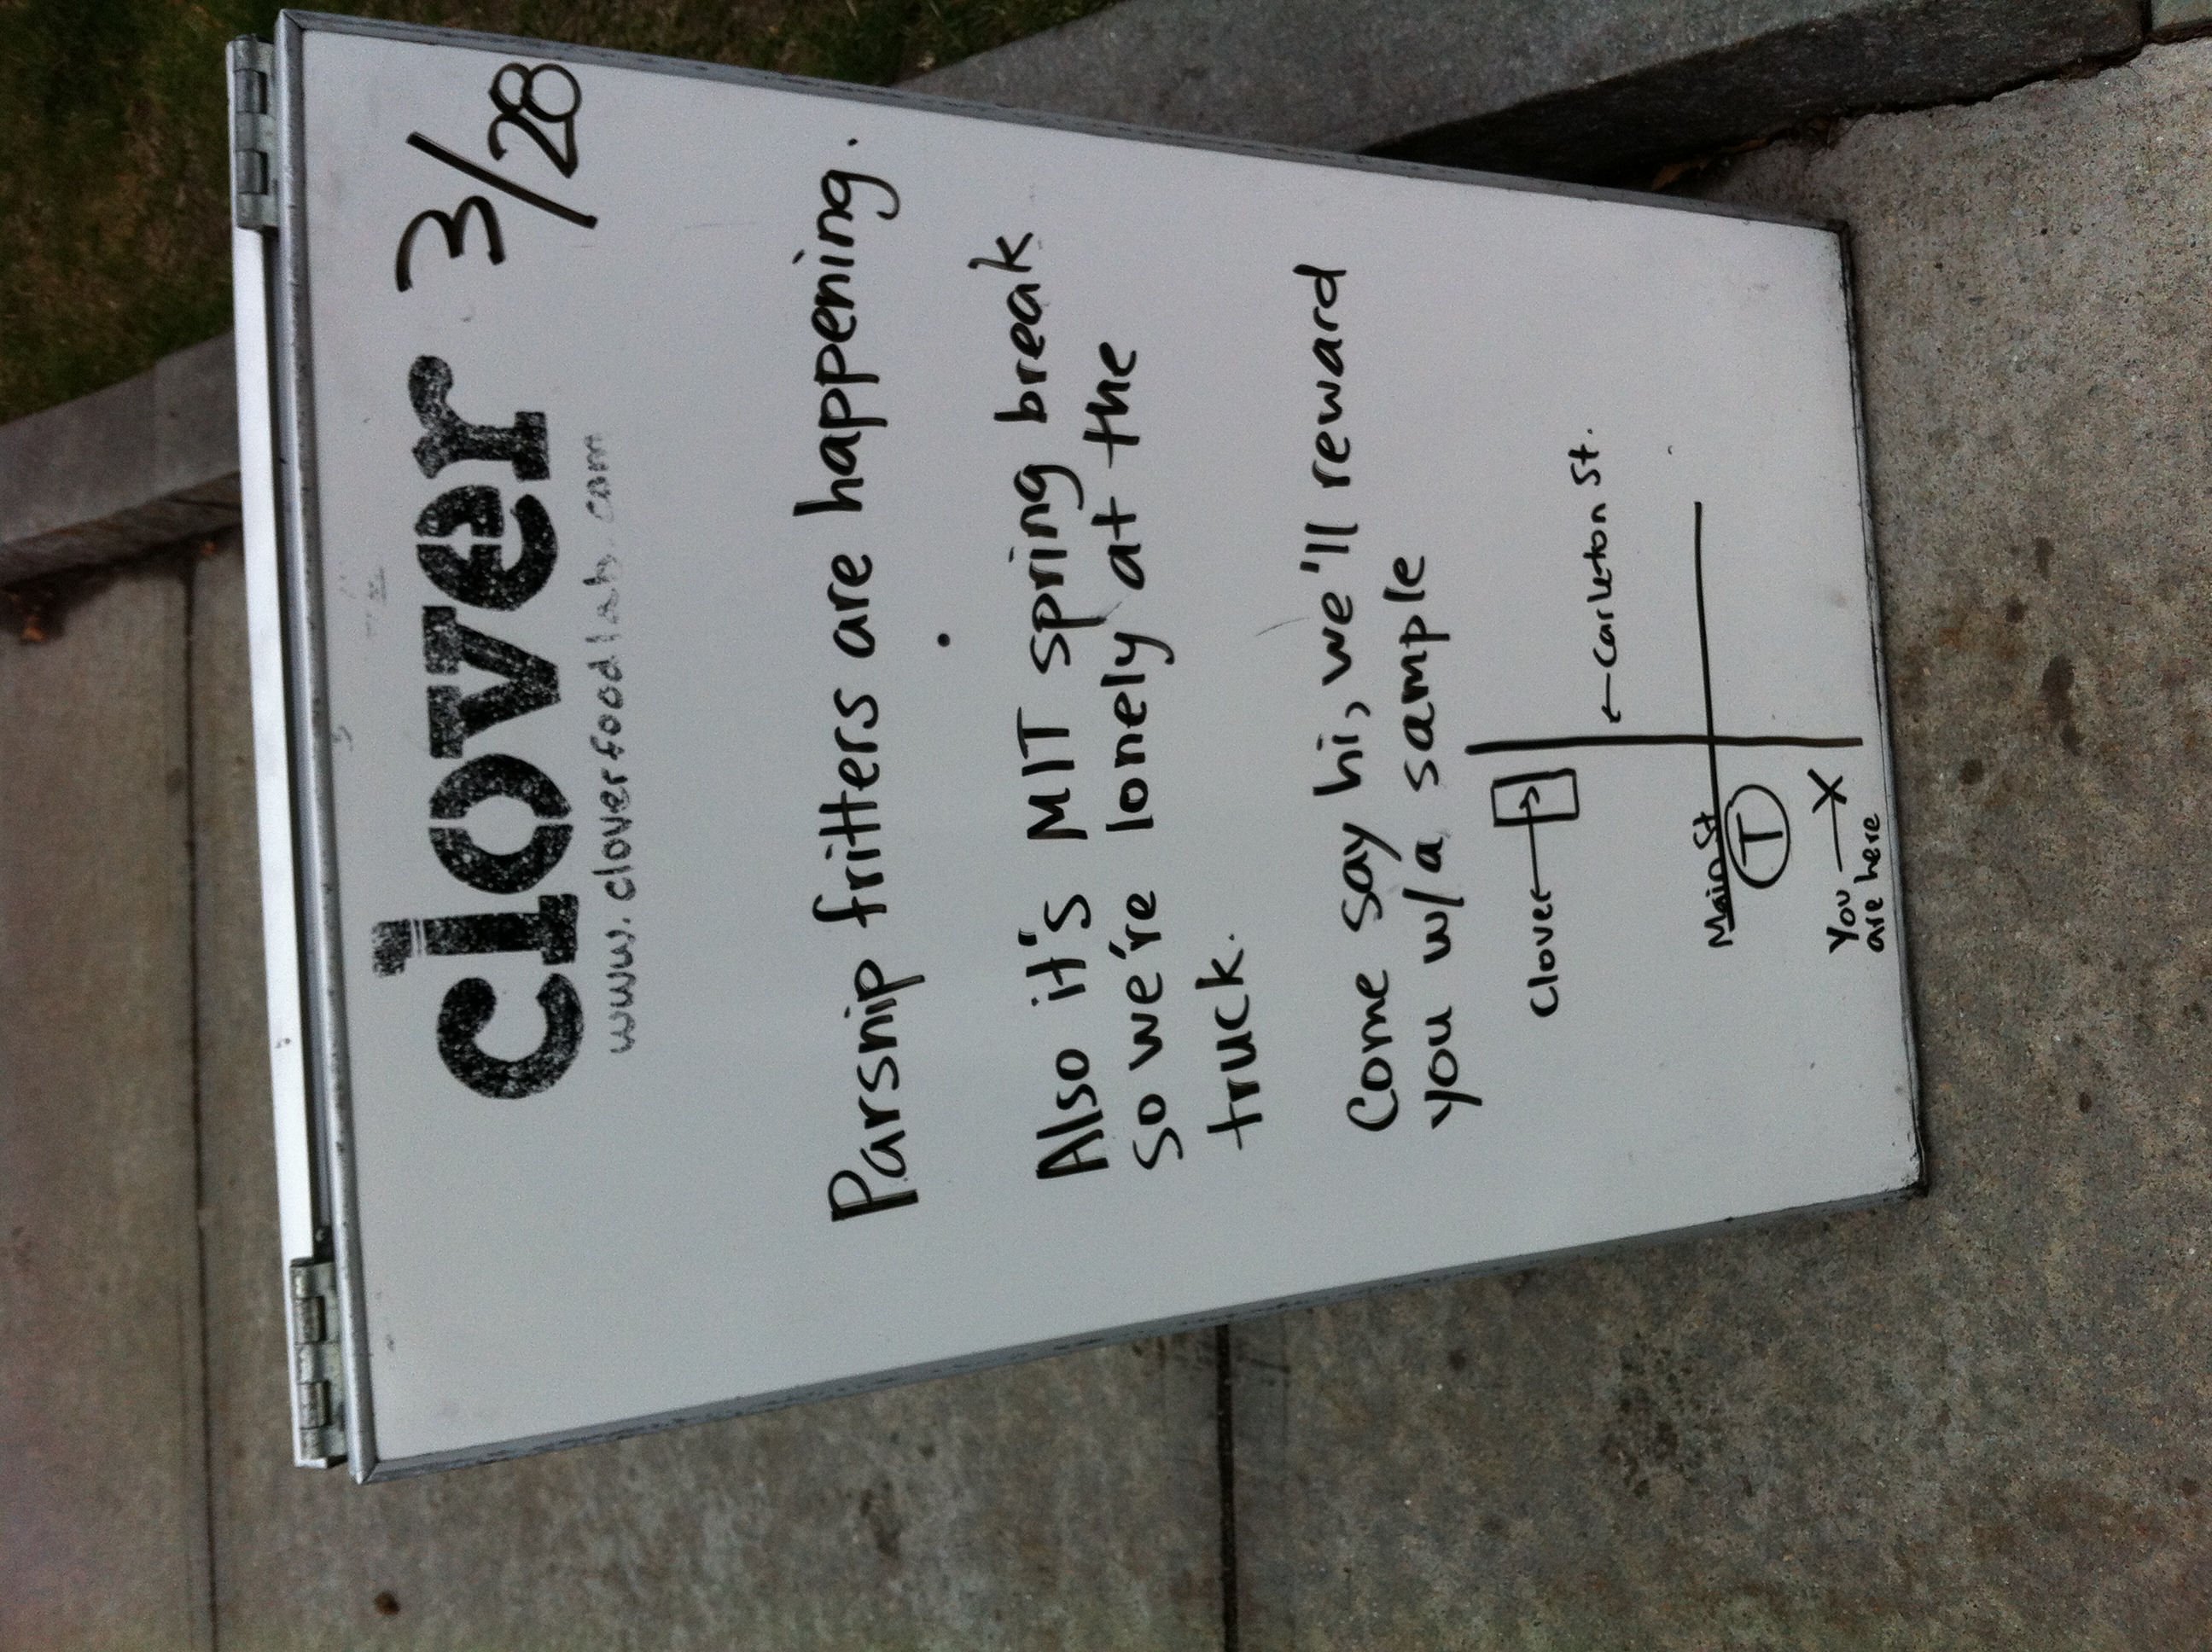 clover 3/28
www.cloverfoodlab.com
Parsnip fritters are happening.
Also it's MIT spring break
so we're lonely at the
truck.
Come say hi, we'll reward
you w/a sample
Clover
Carleton St.
Main St
T
You X
are here